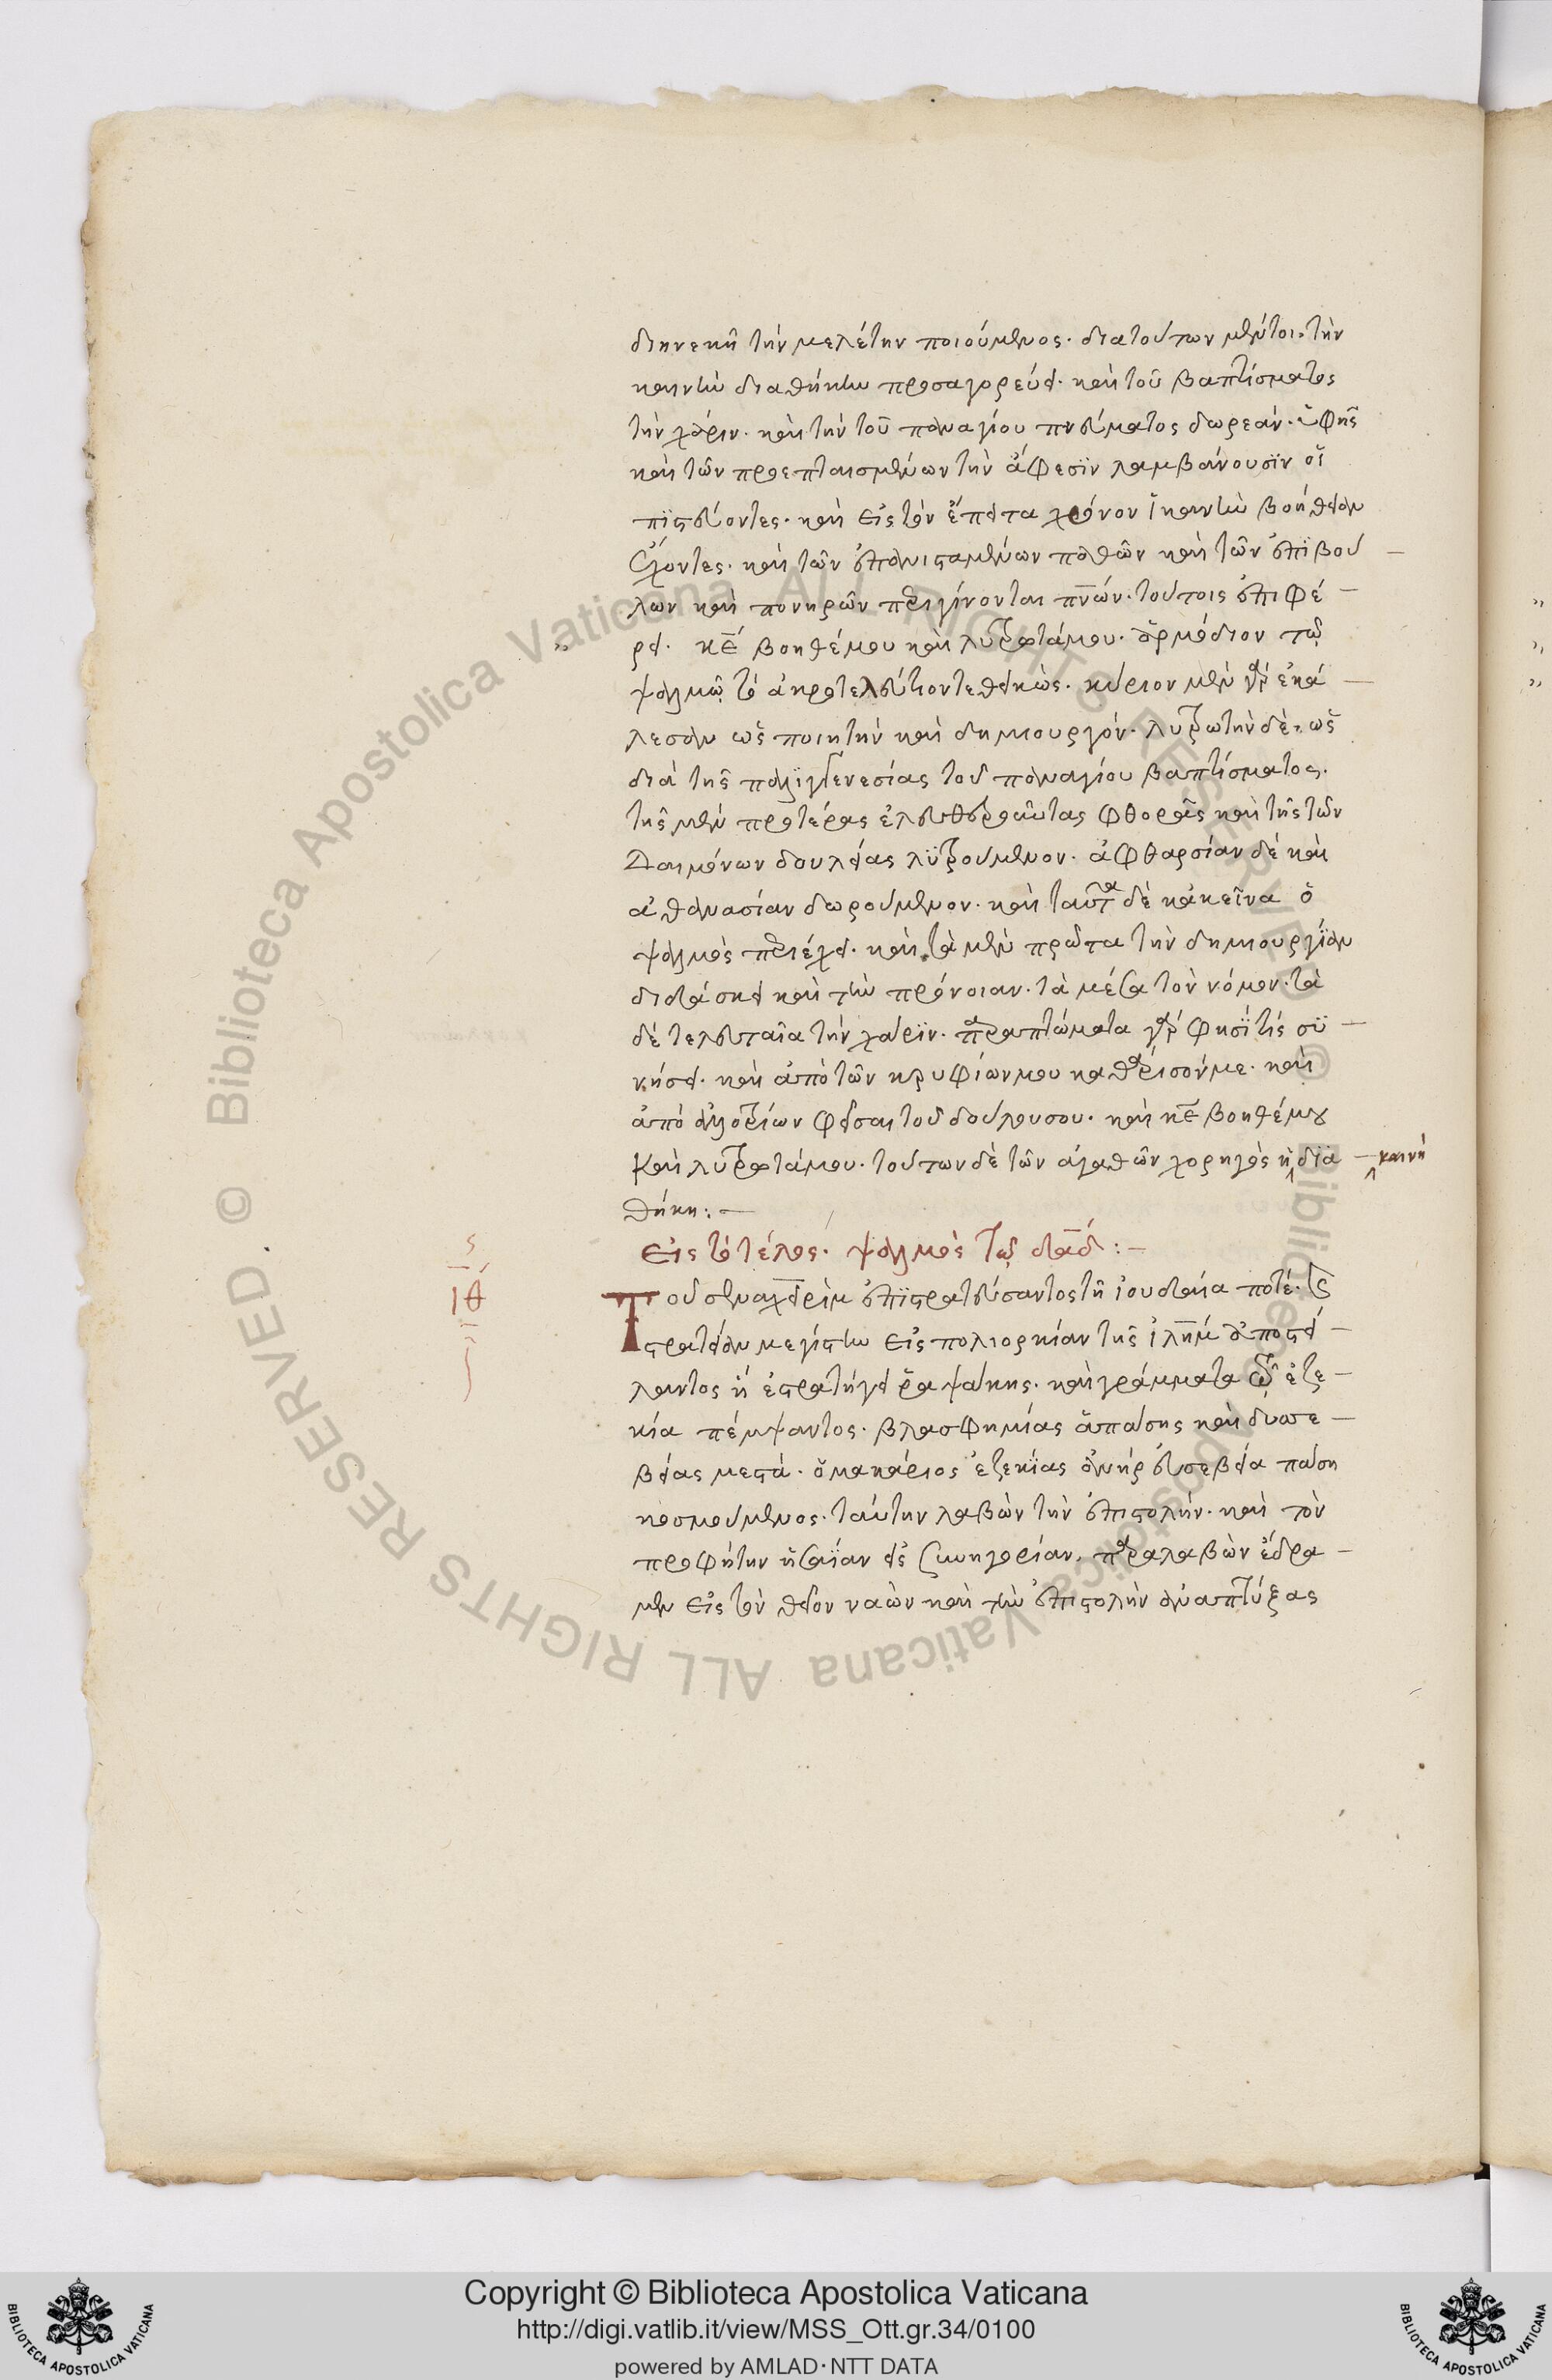 διηνεκῆ τὴν μελέτην ποιούμενος. διατούτων μέντοι. τὴν
καινὴν διαθήκην προσαγορεύει. καὶ τοῦ βαπτίσματος
τὴν χάριν. καὶ τὴν τοῦ παναγίου πνεύματος δωρεάν. ὑφῆς
καὶ τῶν προεπταισμένων τὴν ἄφεσϊν λαμβάνουσϊν οἱ
πϊστεύοντες. καὶ εἰς τὸν ἔπειτα χρόνον ἱκανὴν βοήθειαν
ἔχοντες. καὶ τῶν ἐπανισταμένων παθῶν καὶ τῶν ἐπϊβού
λων καὶ πονηρῶν περιγίνονται πν̅ων. τούτοις ἐπιφέ
ρει. κ̅ε βοηθέμου καὶ λυτρωτάμου. ἁρμόδιον τῷ
ψαλμῷ τὸ ἀκροτελεύτιον τεθεικὼς. κύριον μὲν γὰρ ἐκά
λεσαν ὡς ποιητὴν καὶ δημιουργόν. λυτρωτὴν δὲ, ὡς
διὰ τῆς παλιγγενεσίας τοῦ παναγίου βαπτίσματος.
τῆς μὲν προτέρας ἐλευθεροῦντας φθορᾶς καὶ τῆς τῶν
Δαιμόνων δουλείας λϋτρούμενον. ἀφθαρσίαν δὲ καὶ
ἀθανασίαν δωρούμενον. καὶ ταῦτα δὲ κἀκεῖνα ὁ
ψαλμὸς περιέχει. καὶ τὰ μὲν πρῶτα τὴν δημιουργίαν
διδάσκει καὶ τὴν πρόνοιαν. τὰ μέσα τὸν νόμον. τὰ
δὲ τελευταῖα τὴν χάριν. παραπτώματα γάρ φησϊ τίς συ
νήσει. καὶ ἀπὸ τῶν κρυφίων μου καθάρισόν με. καὶ
ἀπὸ ἀλλοτρίων φεῖσαι τοῦ δούλου σου. καὶ κ̅ε βοηθέ μου
Καὶ λυτρωτάμου. τούτων δὲ τῶν ἀγαθῶν χορηγὸς ἡ καινὴ δϊα
θήκη: —
εἰς τὸ τέλος. ψαλμὸς τῷ δα̅δ: —
ιθ
Τοῦ σεναχειρὶμ ἐπϊστρατεύσαντος τῆ ἰουδαία ποτέ.
στρατείαν μεγίστην εἰς πολιορκίαν τῆς ἱλ̅ημ ἀποστεί
λαντος ἢ ἐστρατήγει ῥαψάκης. καὶ γράμματα τῷ ἐζε
κία πέμψαντος. βλασφημίας ἁπάσης καὶ δυσσε
βείας μεστά. ὁ μακάριος ἐζεκίας ἀνὴρ εὐσεβεία πάση
κοσμούμενος. ταύτην λαβὼν τὴν ἐπιστολήν. καὶ τὸν
προφήτην ἡσαΐαν εἰς συνηγορίαν. παραλαβὼν ἔδρα
μεν εἰς τὸν θεῖον ναὼν καὶ τὴν ἐπιστολὴν ἀναπτύξας
Copyright © Biblioteca Apostolica Vaticana
http://digi.vatlib.it/view/MSS_Ott.gr.34/0100
powered by AMLAD·NTT DATA
© Biblioteca Apostolica Vaticana ALL RIGHTS RESERVED
© Biblioteca Apostolica Vaticana ALL RIGHTS RESERVED
BIBLIOTECA APOSTOLICA VATICANA
BIBLIOTECA APOSTOLICA VATICANA